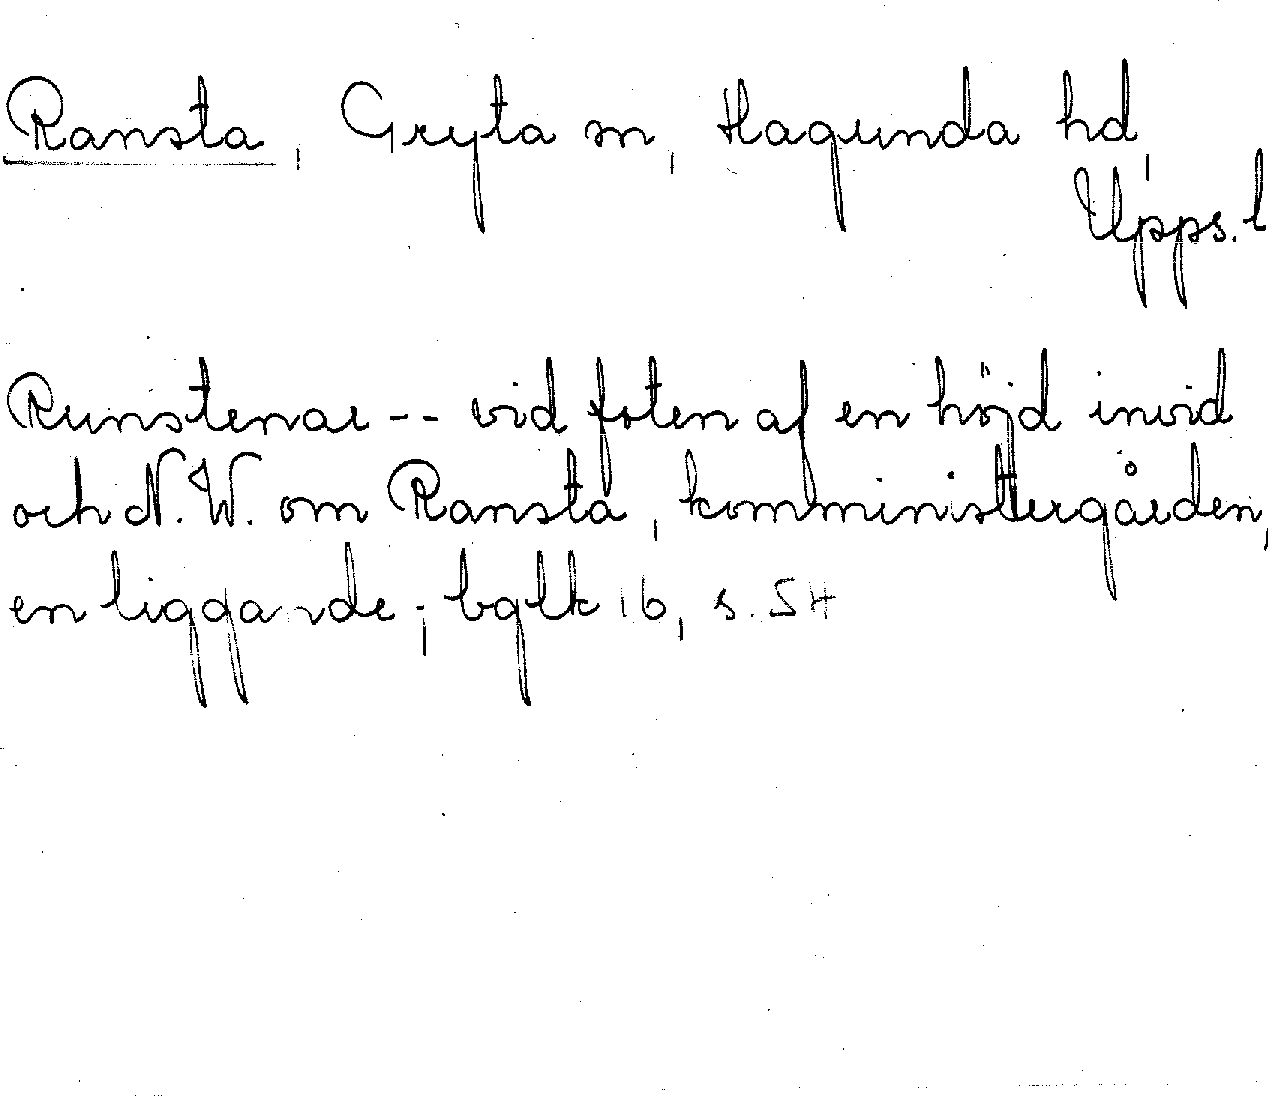 Ransta, Gryta sn, Hagunda hd,
Upps. l
Runstenar -- vid foten af en höjd invid
och N.W. om Ransta, komministergården,
en liggande; bglk 16, s. 54